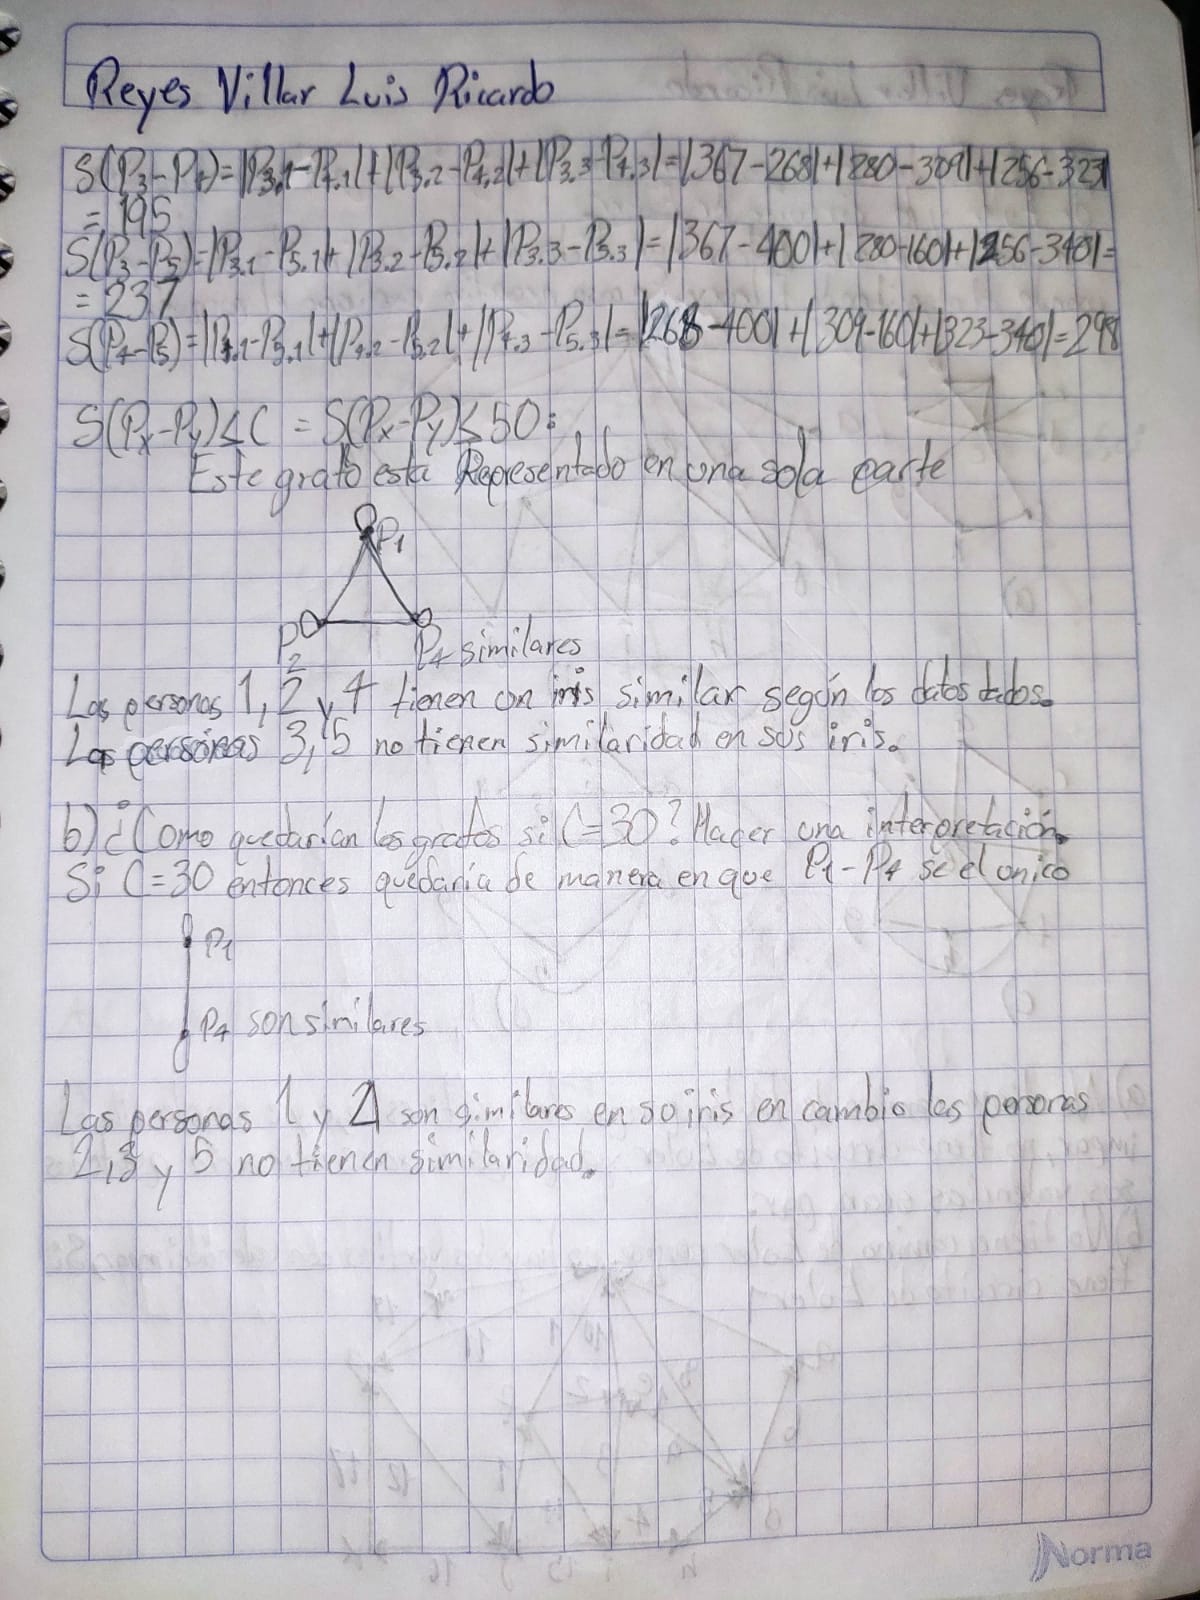 Reyes Villar Luis Ricardo
S(P3-P4)=|P3.1-P4.1|+|P3.2-P4.2|+|P3.3-P4.3|=|367-268|+|280-309|+|256-323|
= 195
S(P3-P5)=|P3.1-P5.1|+|P3.2-P5.2|+|P3.3-P5.3|=|367-400|+|280-160|+|256-340|=
= 237
S(P4-P5)=|P4.1-P5.1|+|P4.2-P5.2|+|P4.3-P5.3|=|268-400|+|309-160|+|323-340|=298
S(Px-Py)≤C = S(Px-Py)≤50:
Este grafo esta Representado en una sola parte
P1
P2
P4 similares
Las personas 1, 2 y 4 tienen un iris similar según los datos dados.
Las personas 3, 5 no tienen similaridad en sus iris.
b) ¿Como quedarían los grafos si C=30? Hacer una interpretación.
Si C=30 entonces quedaría de manera en que P1-P4 se el unico
P1
P4 son similares
Las personas 1 y 4 son similares en su iris en cambio las personas
2,3 y 5 no tienen similaridad.
Norma